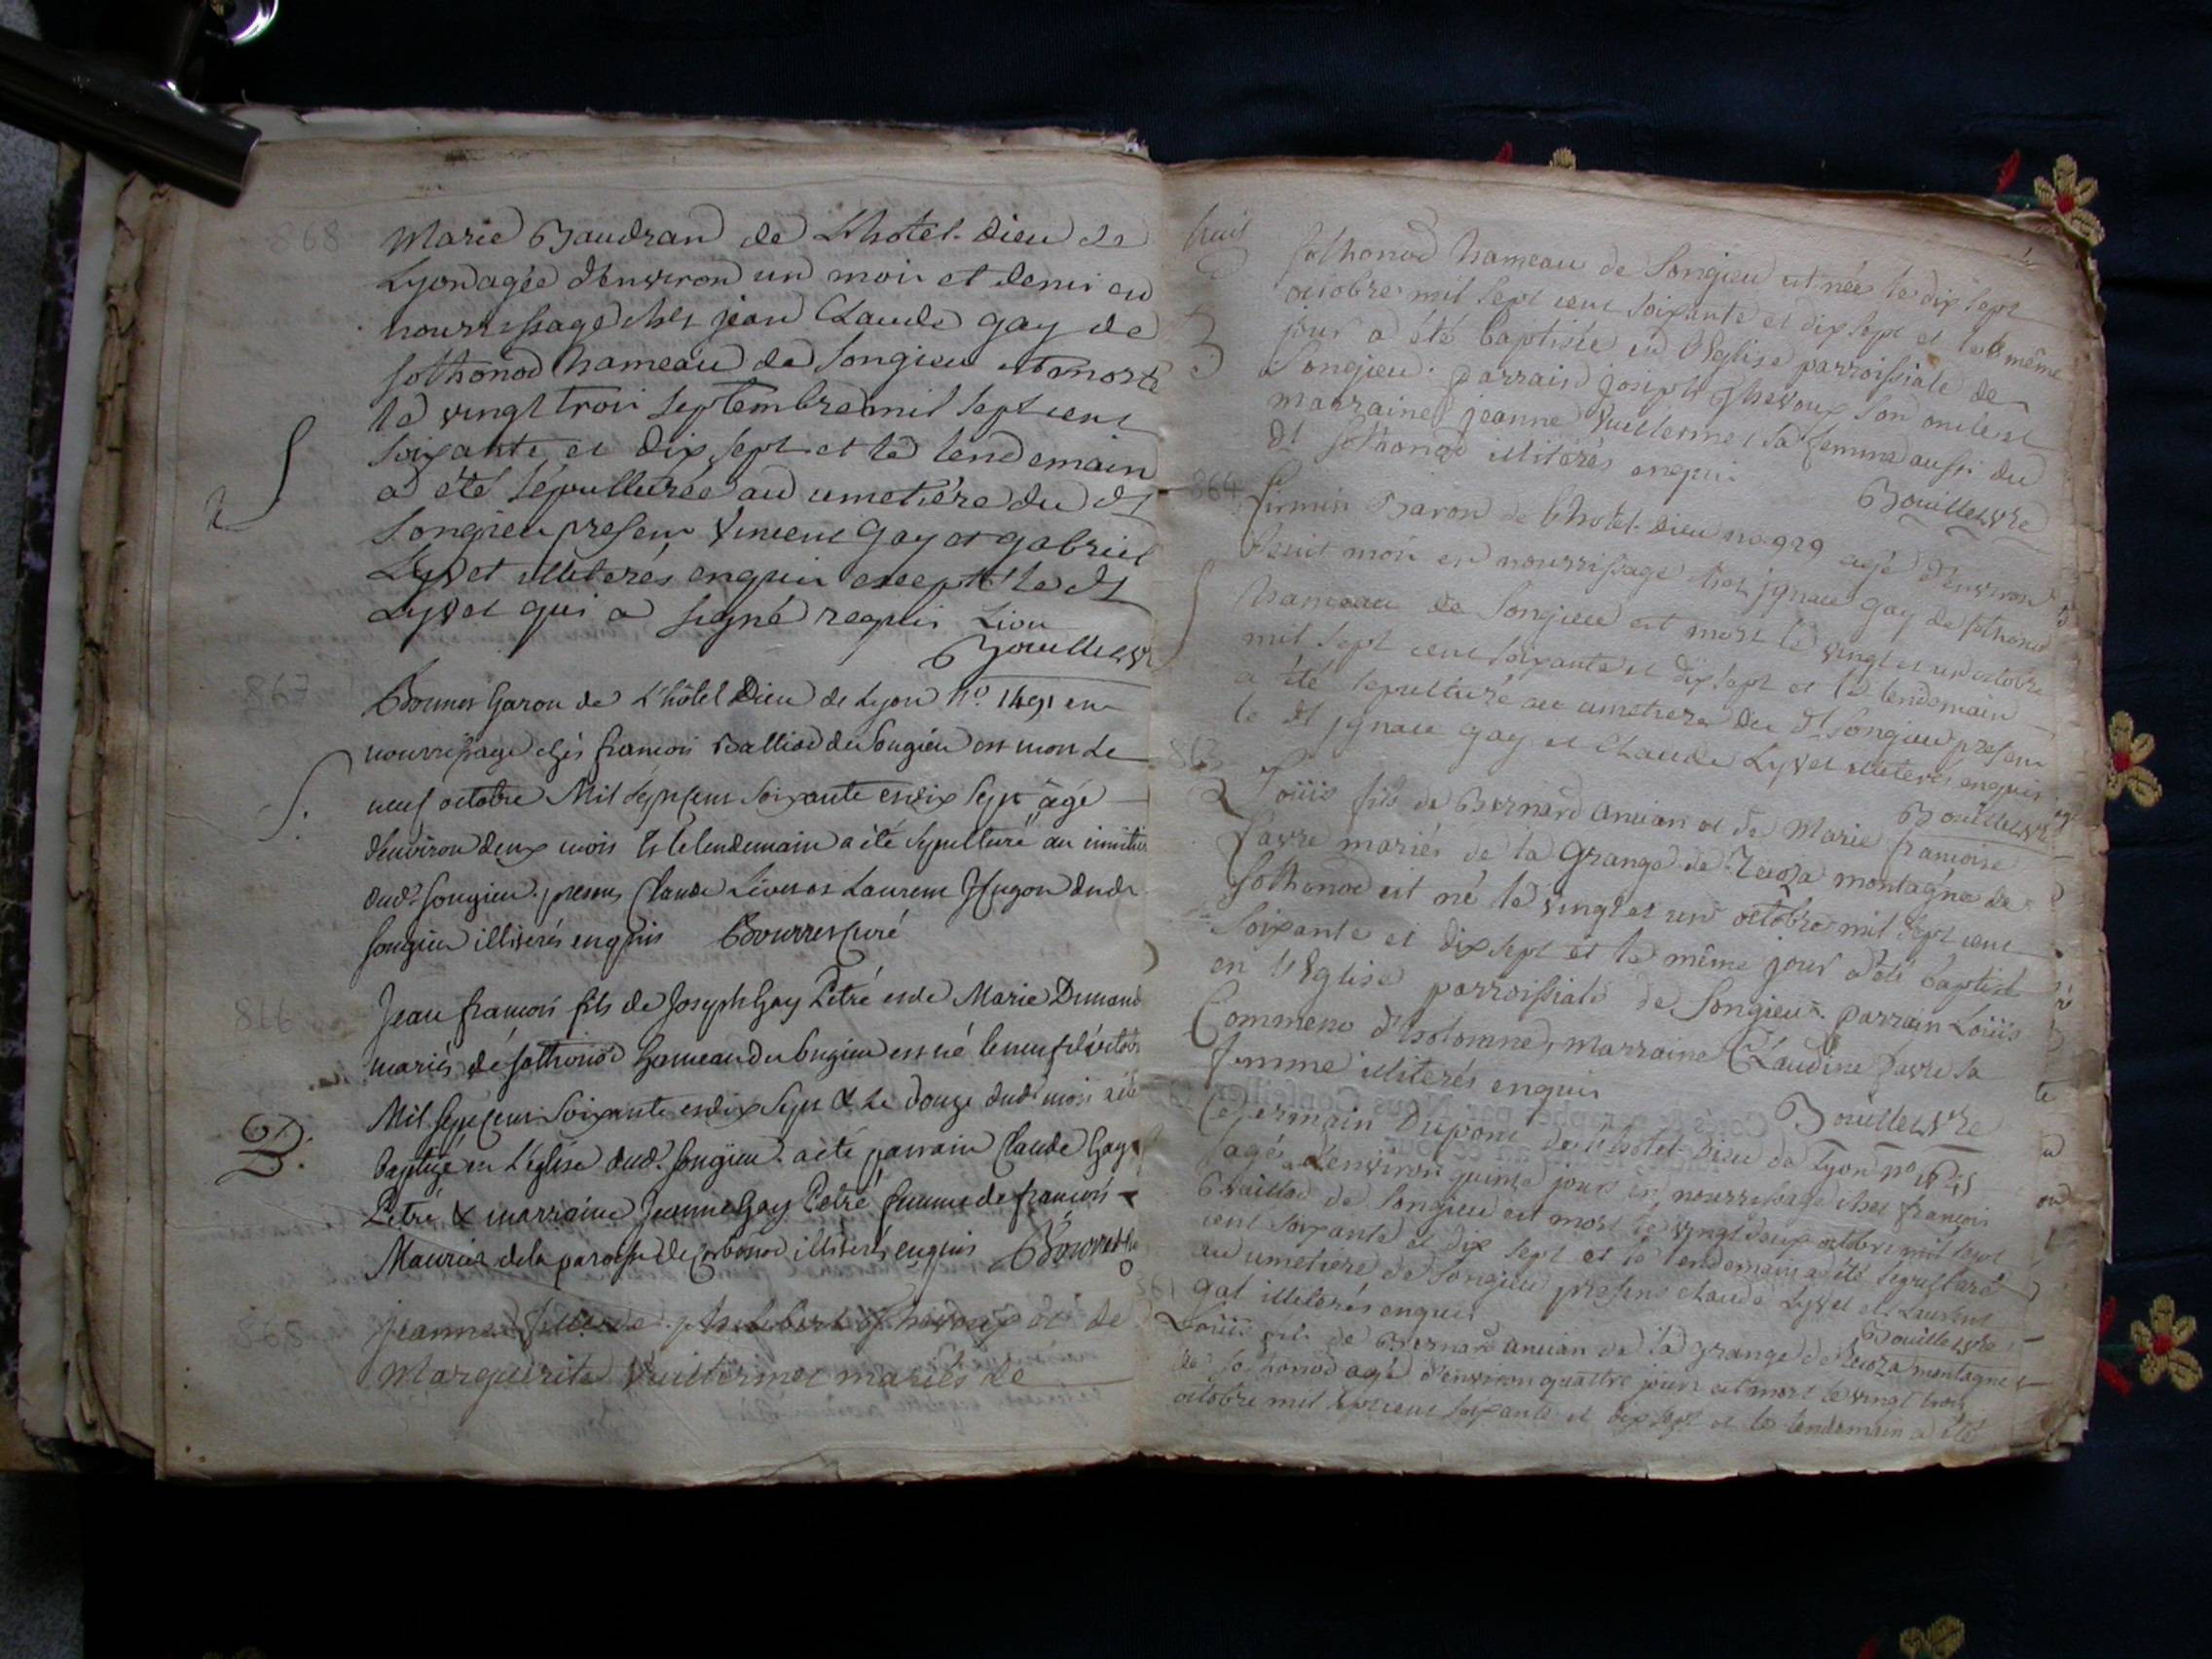 868
Marie Baudran de Lhotel-Dieu de
Lyon agée d'environ un mois et demi en
nourrissage ches jean Claude gay de
sothonod hameau de songieu est morte
le vingt trois septembre mil sept cent
soixante et dix sept et le lendemain
a été sépulturée au cimetière du dt
Songieu presens Vincent gay et gabriel
Lyvet illiterés enquis excepté le dt
Lyvet qui a signé requis
S
867
garon de L'hôtel Dieu de Lyon no. 1491 en
nourrissage chés françois Balliod du songieu est mort le
neuf octobre Mil sept cent soixante et dix sept âgé
d'environ deux mois et le lendemain a été sepulturé au
dudt songieu. presens Claude Livet et Laurent Hugon dudt
songieu illiterés enquis Bourret curé
S.
866
Jean françois fils de Joseph Gay Petré et de Marie Dumond
mariés de sothonod hameau du songieu est né le neuf d'octobre
Mil sept cent soixante et dix sept & le douze dudt mois a été
baptizé en L'église dudt songieu. a été parrain Claude Gay
Petré & marraine Jeanne Gay Petré femme de françois
Maurier de la paroisse de illiterés enquis Bourret
B.
865
jeanne fille de et de
Marguerite Vuillermet mariés de
sothonod hameau de Songieu est née le dix sept
octobre mil sept cent soixante et dix sept et le même
jour a été baptisée en l'Eglise parroissiale de
Songieu. parrain joseph son oncle et
marraine jeanne Vuillermet sa femme aussi du
dt sothonod illiterés enquis
B
864
Firmin Baron de lhotel-Dieu no 929 agé d'environ
huit mois en nourrissage ches jgnace gay de sothonod
hameau de Songieu est mort le vingt et un octobre
mil sept cent soixante et dix sept et le lendemain
a été sepulturé au cimetiere du dt songieu presens
le dt jgnace gay et Claude Lyvet illiterés enquis
Loüis fils de Bernard ancian et de Marie françoise
favre mariés de la grange de montagne de
sothonod est né le vingt et un octobre mil sept cent
soixante et dix sept et le même jour a été baptisé
en l'Eglise parroissiale de Songieu. parrain Loüis
marraine Claudine favre sa
femme illiterés enquis
germain Dupont de lhotel-Dieu de Lyon no
agé d'environ quinze jours en nourrissage ches françois
de Songieu est mort le vingt deux octobre mil sept
cent soixante et dix sept et le lendemain a été sepulturé
au cimetiere de Songieu presens Claude Lyvet et Laurent
illiterés enquis
Loüis fils de Bernard ancian de la grange de montagne
de sothonod agé d'environ quattre jours est mort le vingt trois
octobre mil sept cent soixante et dix sept et le lendemain a été